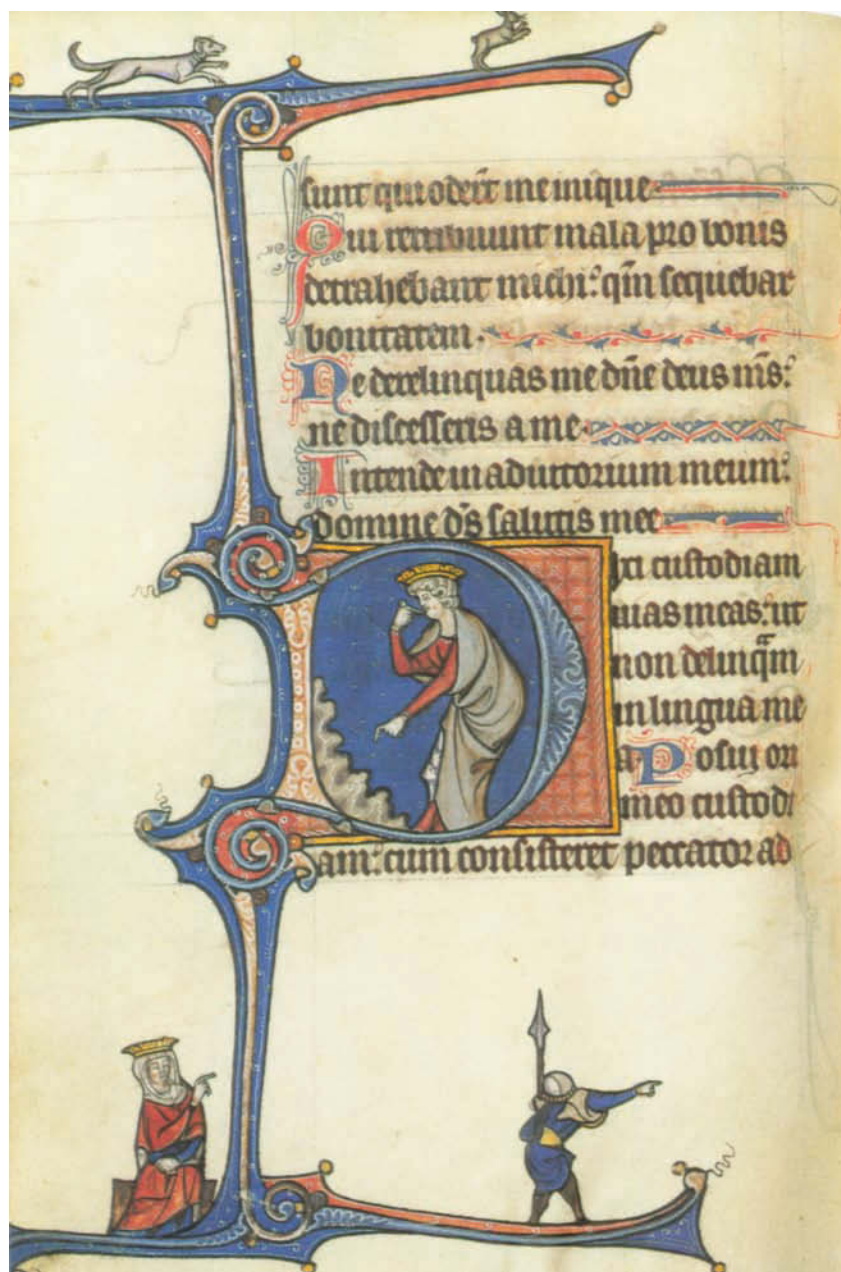 sunt qui oder̄t me inique
Qui retribuunt mala pro bonis
detrahebant michi: qm̄ sequebar
bonitatem.
Ne derelinquas me dn̄e deus ms̄:
ne discesseris a me.
Intende in adiutorium meum:
domine ds̄ salutis mee
Dixi custodiam
uias meas: ut
non delinqᵃm
in lingua me
a. Posui ori
meo custodi
am: cum consisteret peccator ad